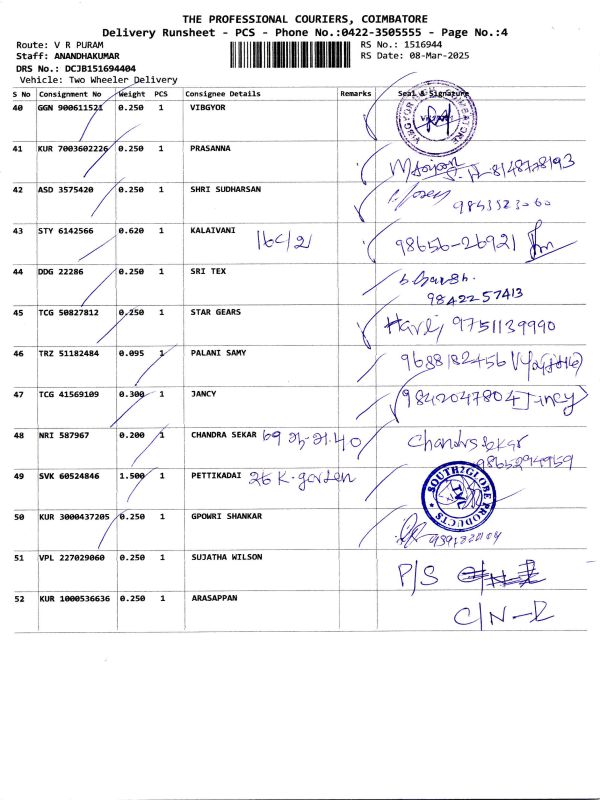 THE PROFESSIONAL COURIERS, COIMBATORE
Delivery Runsheet - PCS - Phone No.:0422-3505555 - Page No.:4
Route: V R PURAM
RS No.: 1516944
Staff: ANANDHAKUMAR
RS Date: 08-Mar-2025
DRS No.: DCJB151694404
Vehicle: Two Wheeler Delivery
S No Consignment No Weight PCS Consignee Details Remarks Seal & Signature
40 GGN 900611521 0.250 1 VIBGYOR VIBGYOR
41 KUR 7003602226 0.250 1 PRASANNA 8148778193
42 ASD 3575420 0.250 1 SHRI SUDHARSAN
43 STY 6142566 0.620 1 KALAIVANI 16C/21 98656-26921
44 DDG 22286 0.250 1 SRI TEX
9842257413
45 TCG 50827812 0.250 1 STAR GEARS 9751139990
46 TRZ 51182484 0.095 1 PALANI SAMY 9688182456
47 TCG 41569109 0.300 1 JANCY 9842047804 Jincy
48 NRI 587967 0.200 1 CHANDRA SEKAR
9865294959
49 SVK 60524846 1.500 1 PETTIKADAI 26 K. garden SOUTH2GLOBE PRODUCTS
50 KUR 3000437205 0.250 1 GPOWRI SHANKAR
51 VPL 227029060 0.250 1 SUJATHA WILSON P/S
52 KUR 1000536636 0.250 1 ARASAPPAN C/N-R